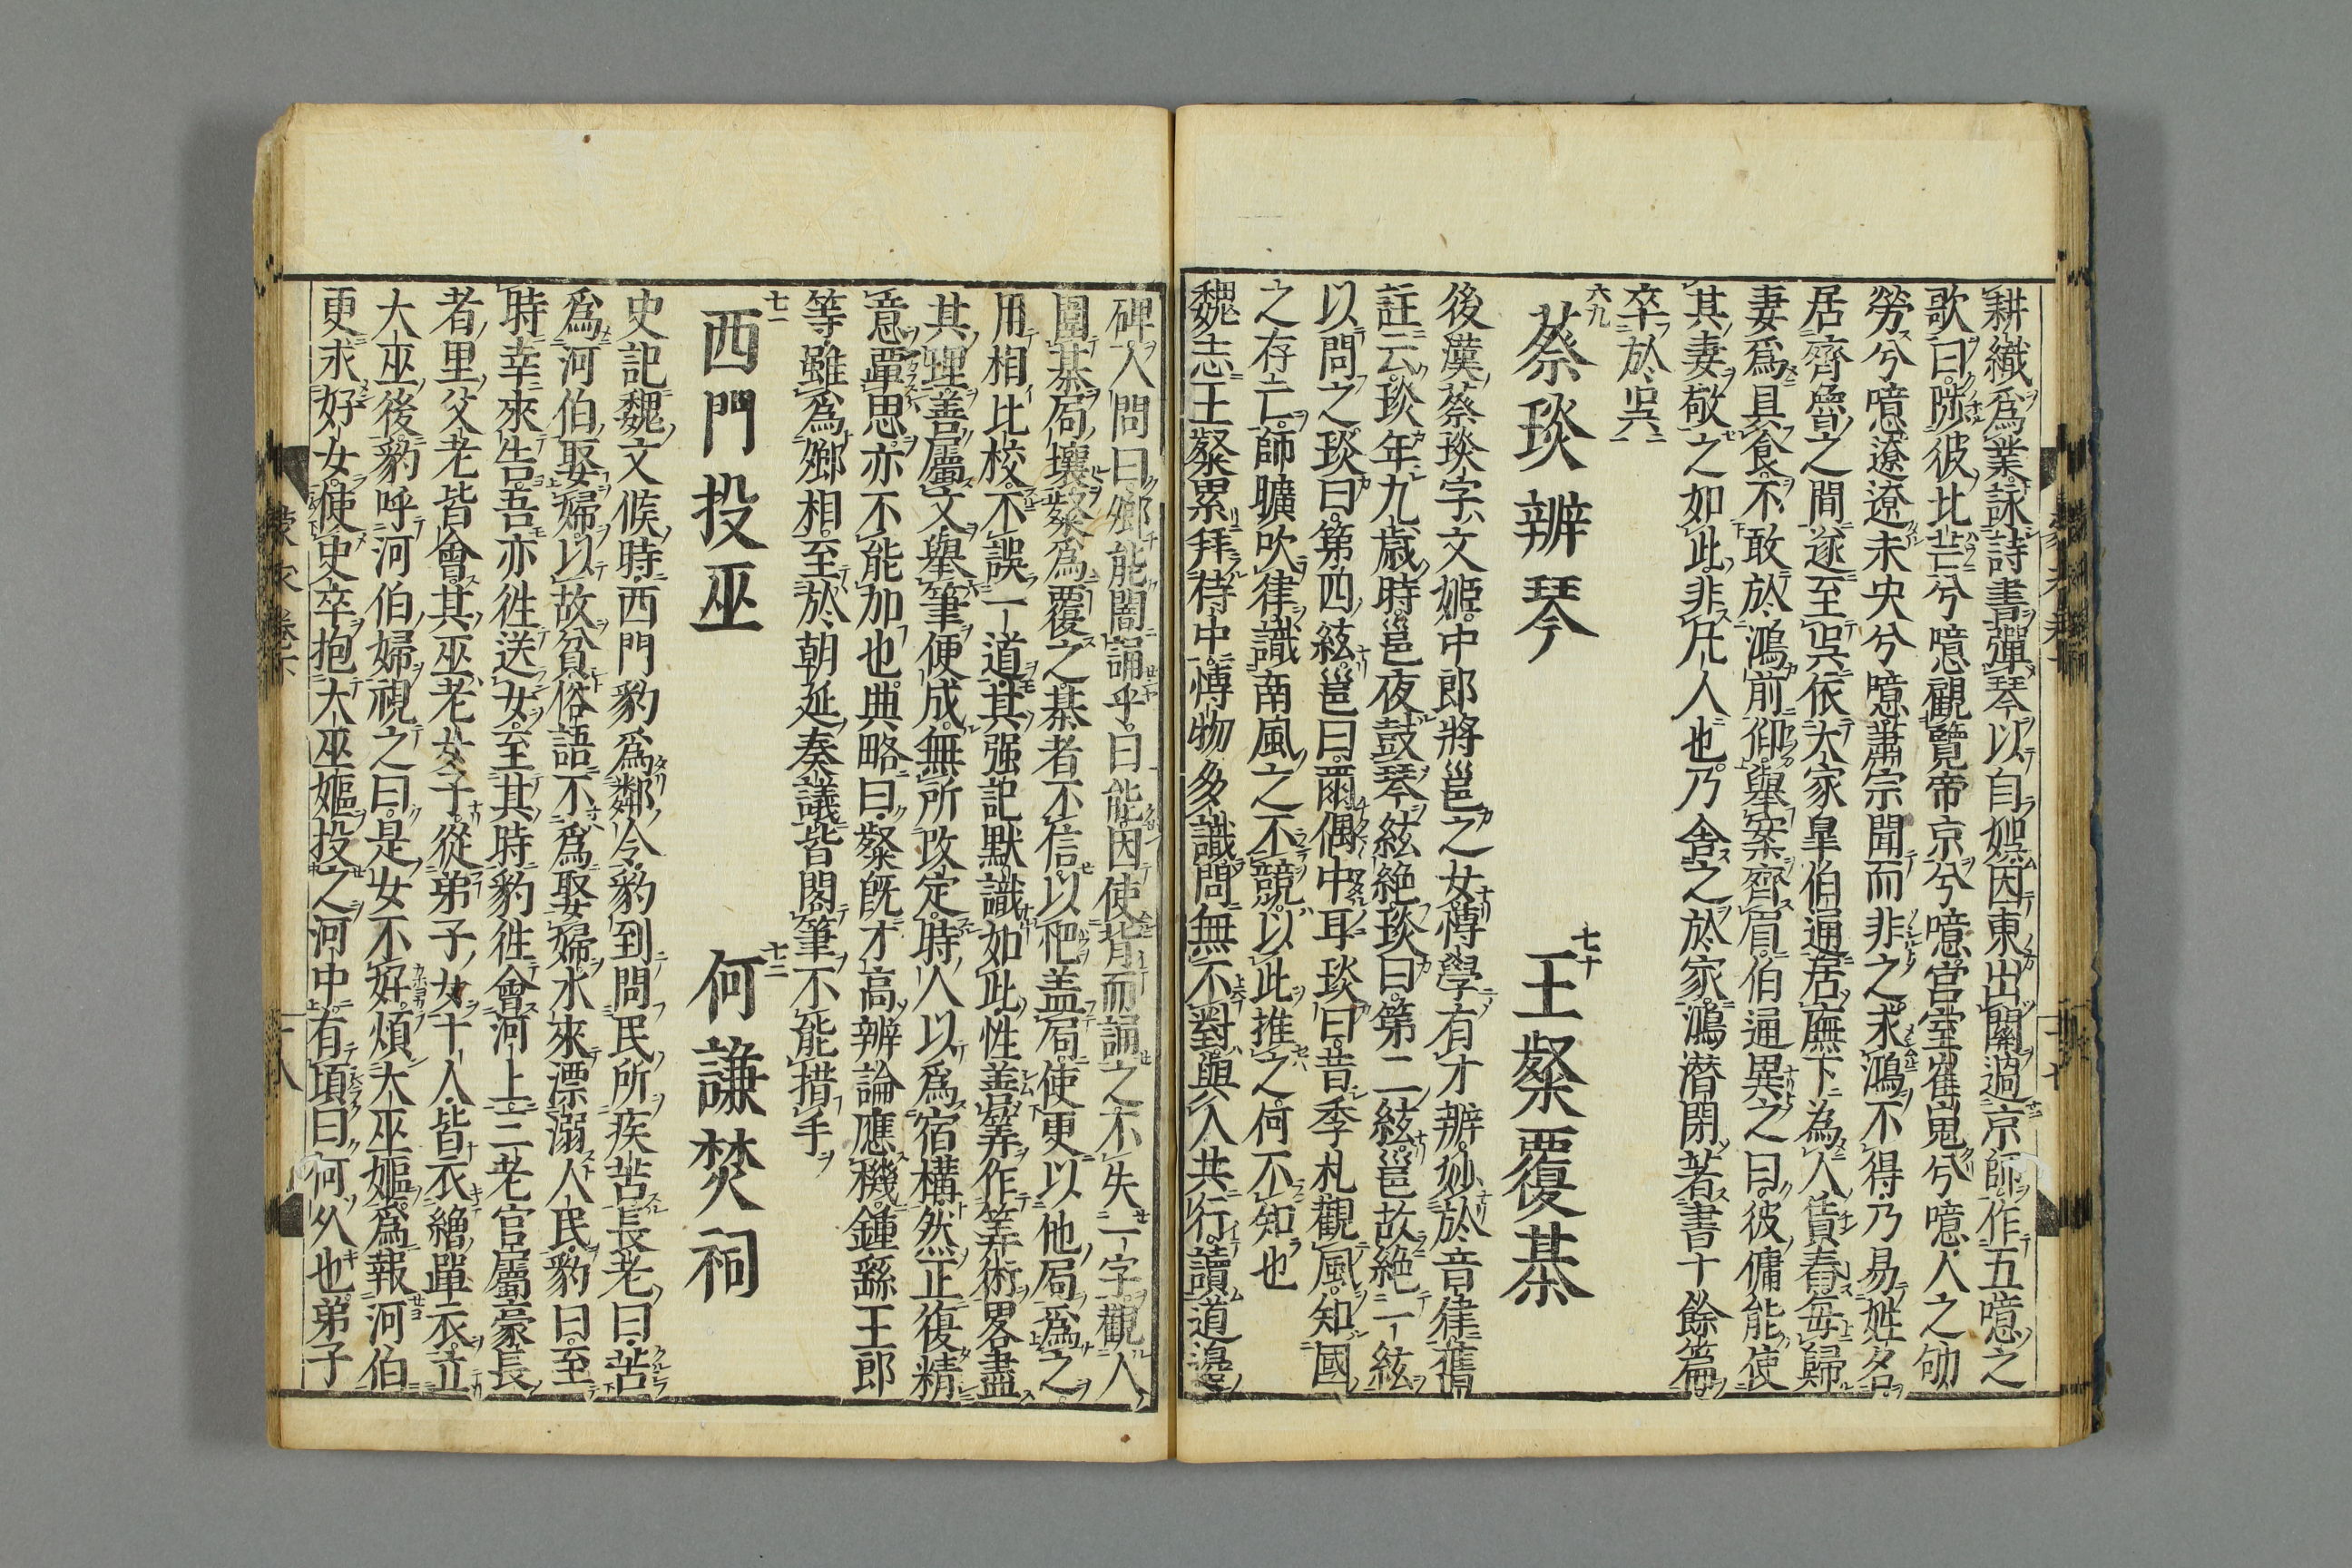 耕織爲業詠詩書彈琴以自娯因東出關過京師作五噫之
歌曰陟彼北芒兮噫觀覽帝京兮噫宮室崔嵬兮噫人之劬
勞兮噫遼遼未央兮噫肅宗聞而非之求鴻不得乃易姓名
居齊魯之間遂至呉依大家皐伯通居廡下為人賃舂毎歸
妻爲具食不敢於鴻前仰擧案齊眉伯通異之曰彼傭能使
其妻敬之如此非凡人也乃舍之於家鴻潜閉著書十餘篇
卒於呉
六九
蔡琰辨琴
七十
王粲覆棊
後漢蔡琰字文姫中郎將邕之女博學有才辨妙於音律舊
註云琰年九歳時邕夜鼓琴絃絶琰曰第二絃邕故絶一絃
以問之琰曰第四絃邕曰爾偶中耳琰曰昔季札觀風知國
之存亡師曠吹律識南風之不競以此推之何不知也
魏志王粲累拜侍中博物多識問無不對與人共行讀道邊
碑人問曰郷能闇誦乎曰能因使背而誦之不失一字觀人
圍棊局壞粲爲覆之棊者不信以帊盖局使更以他局爲之
用相比校不誤一道其强記默識如此性善筭作筭術畧盡
其理善屬文擧筆便成無所改定時人以爲宿構然正復精
意覃思亦不能加也典略曰粲既才高辨論應機鍾繇王郎
等雖為郷相至於朝延奏議皆閣筆不能措手
七一
西門投巫
七二
何謙焚祠
史記魏文候時西門豹爲鄴令豹到問民所疾苦長老曰苦
爲河伯娶婦以故貧俗語不爲娶婦水來漂溺人民豹曰至
時幸來告吾亦徃送女至其時豹徃會河上三老官屬豪長
者里父老皆會其巫老女子從弟子女十人皆衣繒單衣立
大巫後豹呼河伯婦視之曰是女不好煩大巫嫗爲報河伯
更求好女使吏卒抱大巫嫗投之河中有頃曰何久也弟子